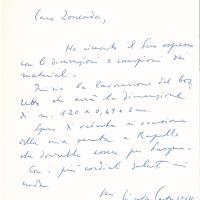 Caro Zoncada,
Ho ricevuto il Suo espresso
con le dimensioni e campioni dei
materiali.
Inizio la lavorazione del boz
zetto che avrà la dimensione
di m. 1.20 x 0,49 x 2 m.
Spero di vederla in occasione
della mia venuta a Rapallo
che dovrebbe essere per Pasqua.
Con i più cordiali saluti mi
creda